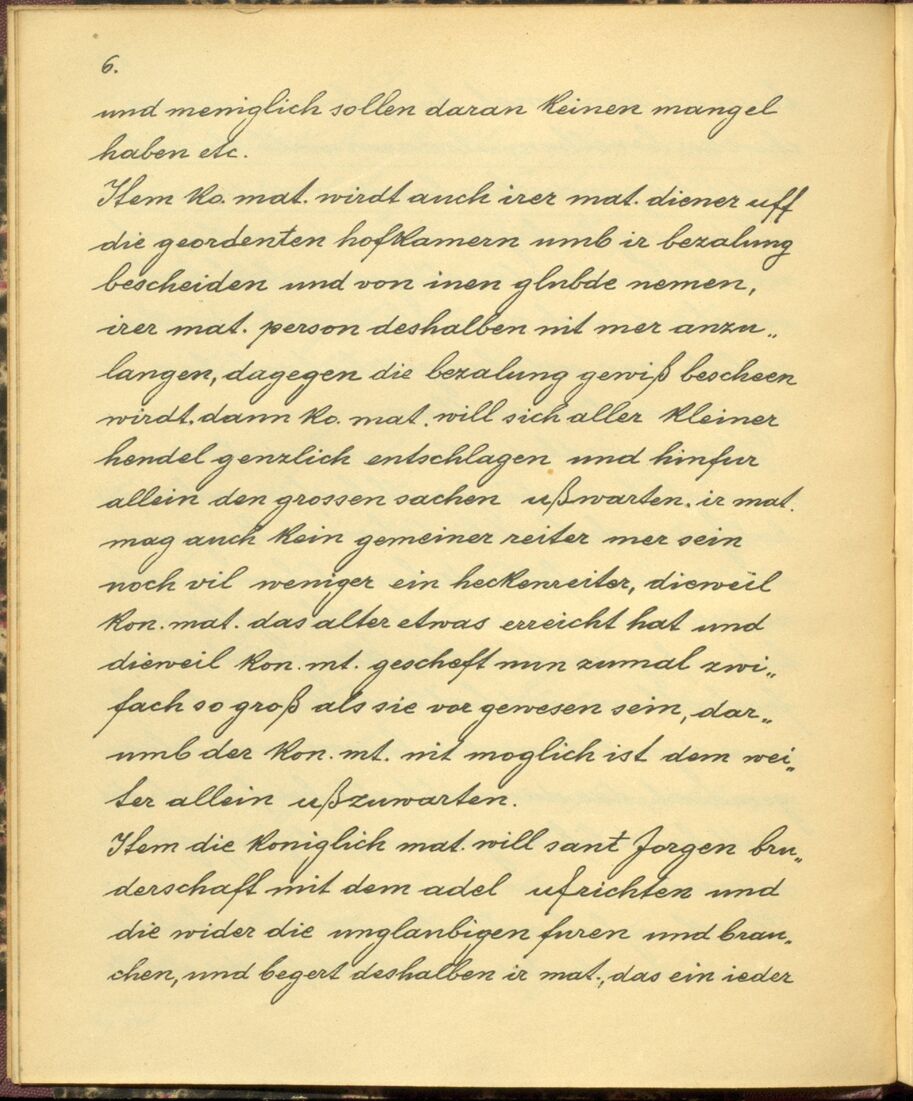 6.
und meniglich sollen daran keinen mangel
haben etc.
Item ko. mat. wirdt auch irer mat. diener uff
die geordenten hofkamern umb ir bezalung
bescheiden und von inen glubde nemen,
irer mat. person deshalben nit mer anzu„
langen, dagegen die bezalung gewiß bescheen
wirdt. dann ko. mat. will sich aller kleiner
hendel genzlich entschlagen und hinfur
allein den grossen sachen ußwarten. ir mat.
mag auch kein gemeiner reiter mer sein
noch vil weniger ein heckenreiter, dieweil
kon. mat. das alter etwas erreicht hat und
dieweil kon. mt. gescheft nun zumal zwi„
fach so groß als sie vor gewesen sein, dar„
umb der kon. mt. nit moglich ist dem wei„
ter allein ußzuwarten.
Item die koniglich mat. will sant Jorgen bru„
derschaft mit dem adel ufrichten und
die wider die unglaubigen furen und brau„
chen, und begert deshalben ir mat., das ein ieder